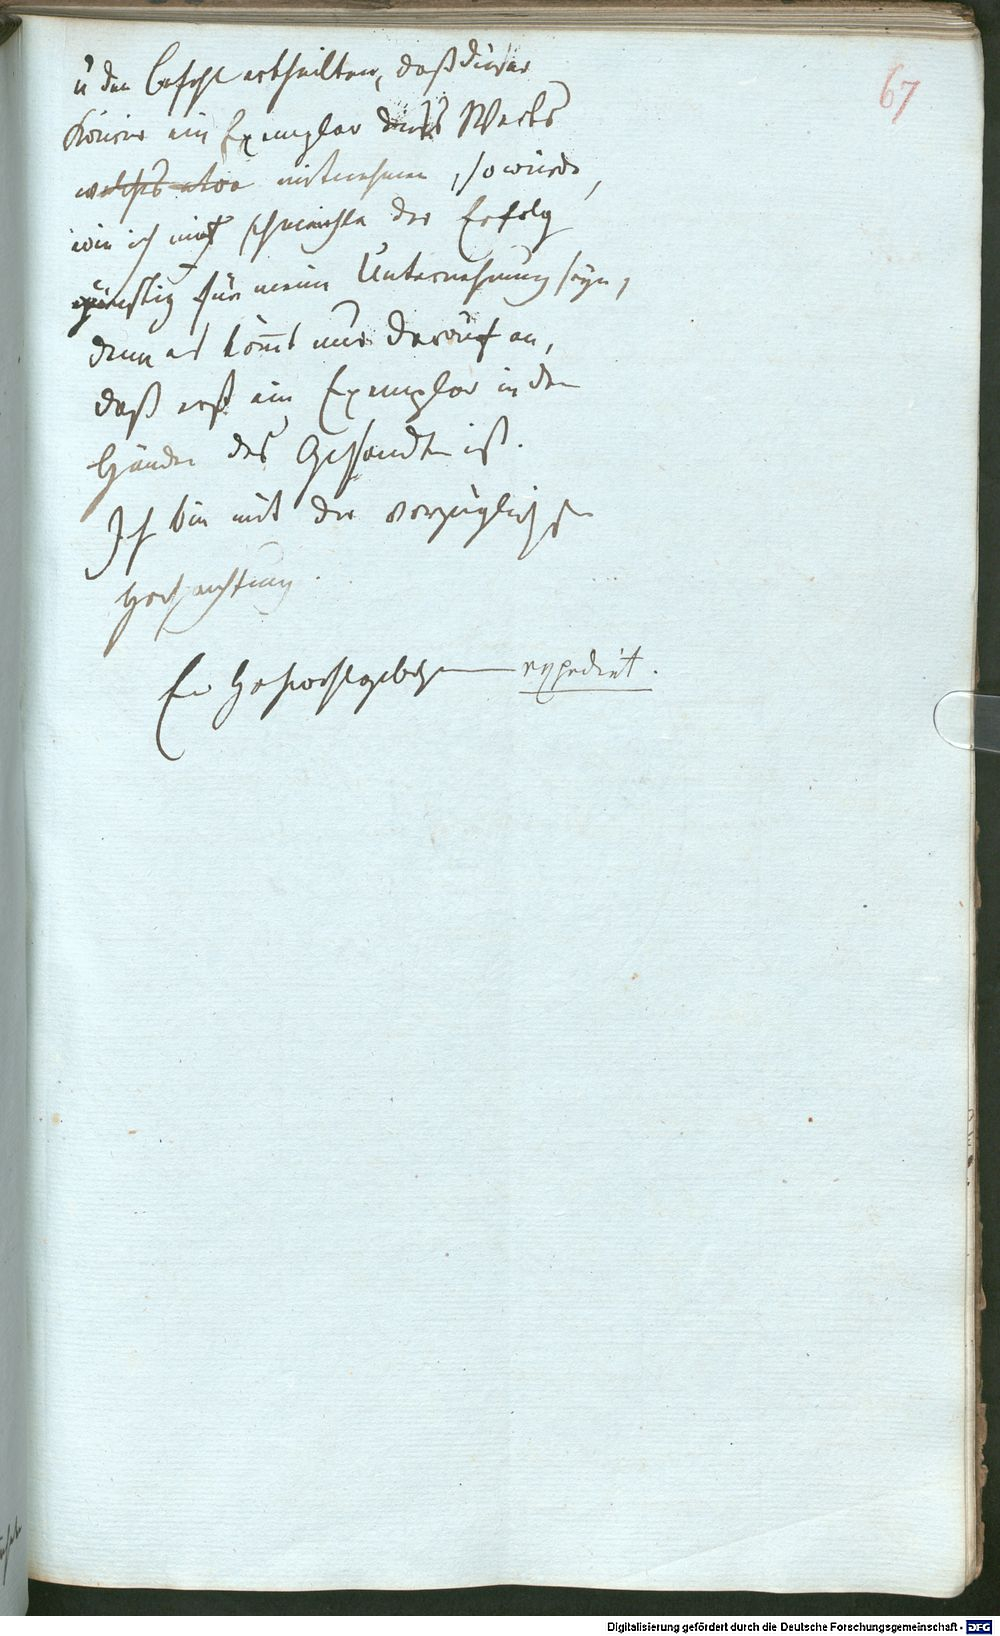 67
u den Befehl ertheilten, daß dieser
Kourier ein Exemplar dieses Werks
welches etwa mitnehmen, so würde,
wie ich mich schmeichle der Erfolg
günstig für meine Unternehmung seyn,
denn es kömt nur darauf an,
daß erst ein Exemplar in den
Händen des Gesandten ist.
Ich bin mit der vorzüglichsten
Hochachtung.
Ew Hochwohlgeboren expedirt.
Digitalisierung gefördert durch die Deutsche Forschungsgemeinschaft - DFG